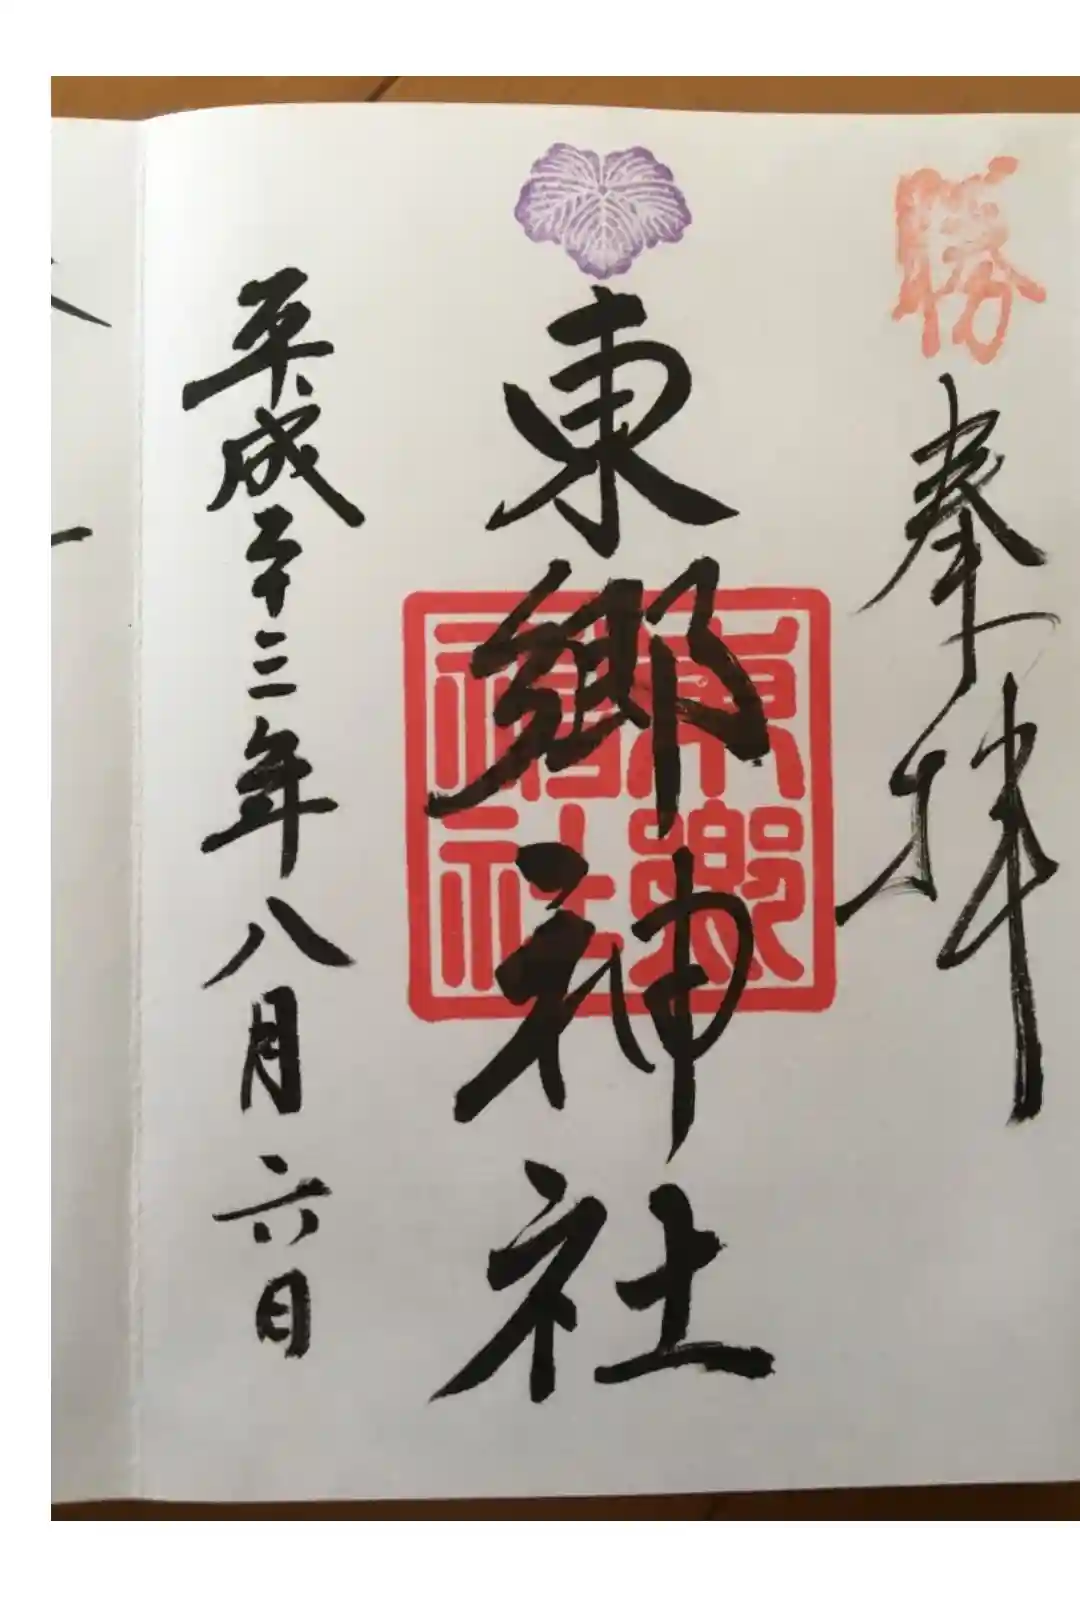 勝
奉拝
東郷神社
東郷神社
平成二十三年八月六日